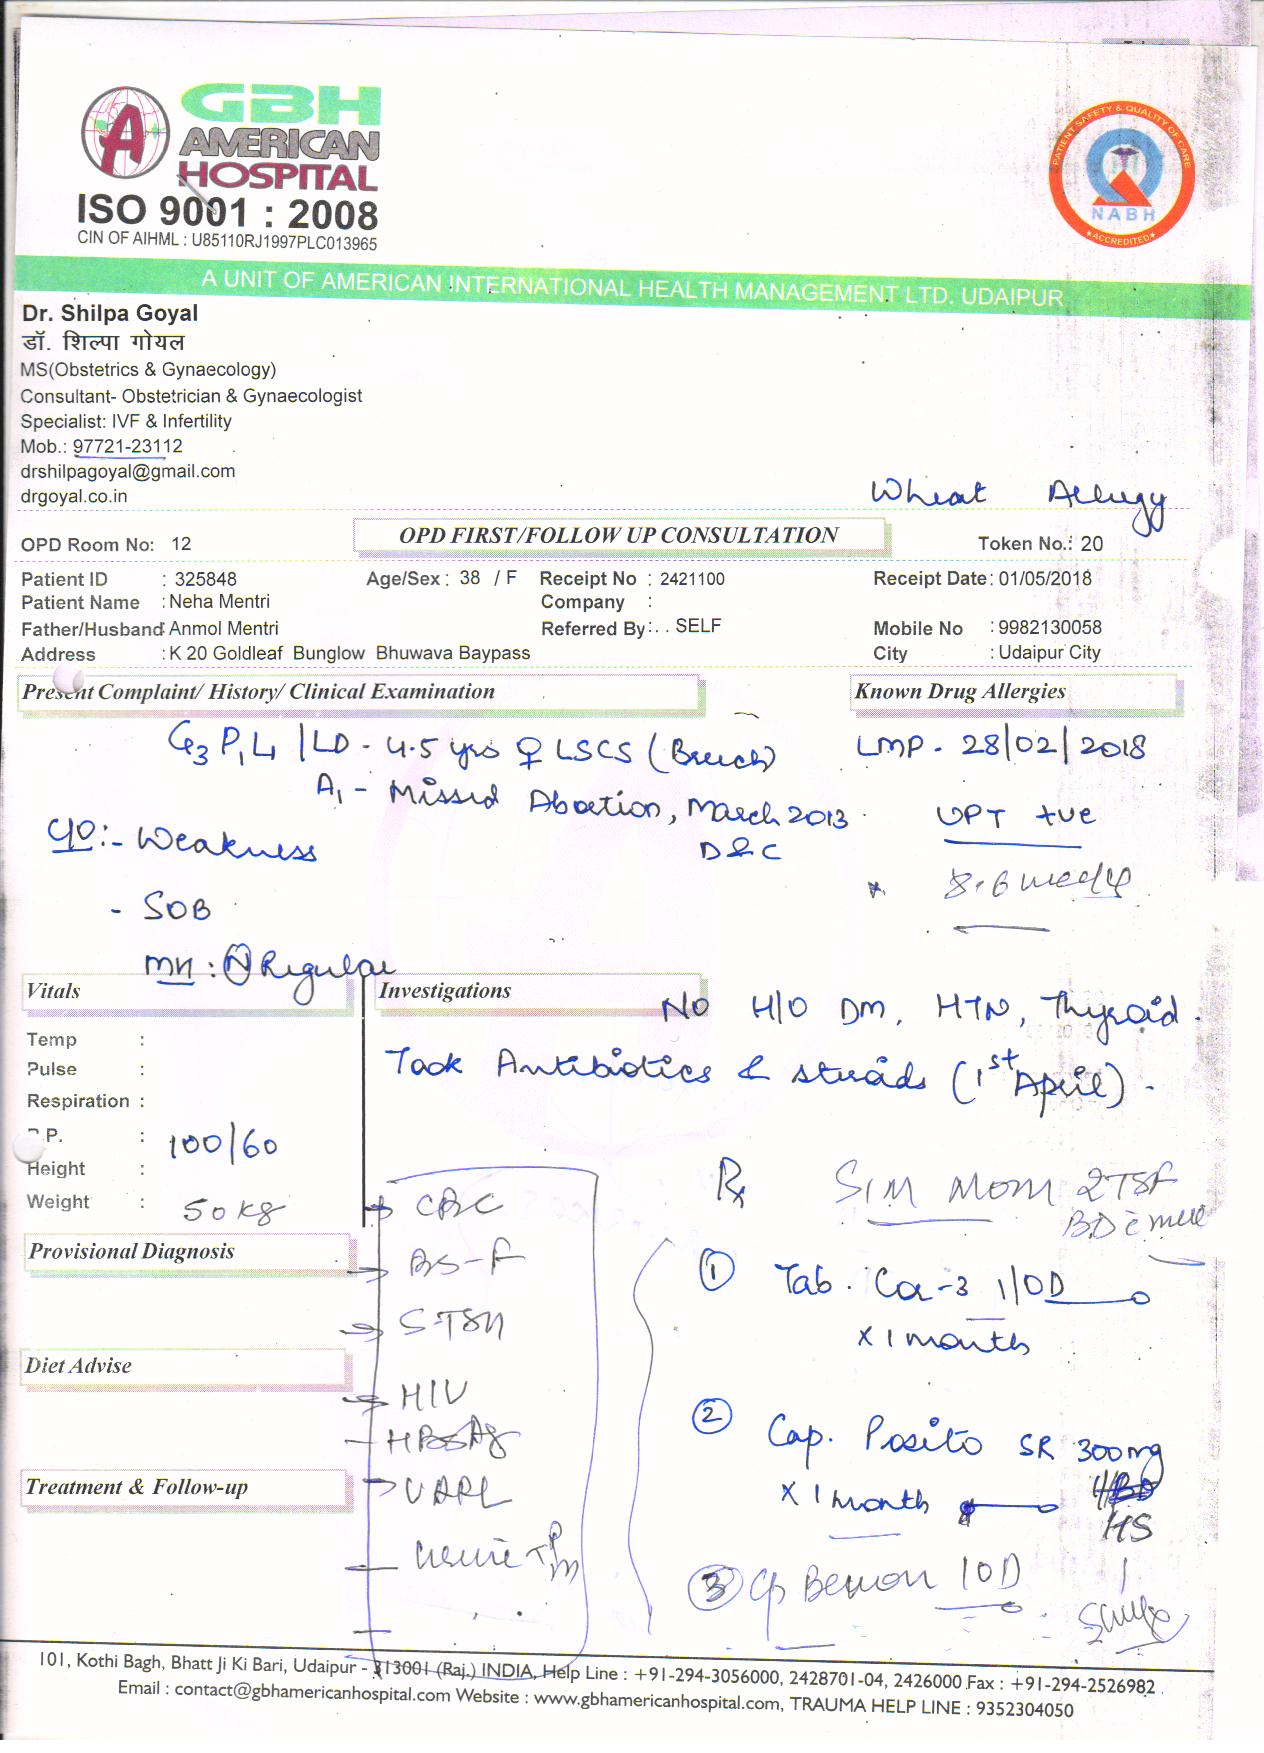 GBH
AMERICAN
HOSPITAL
ISO 9001 : 2008
CIN OF AIHML : U85110RJ1997PLC013965
PATIENT SAFETY & QUALITY OF CARE
NABH
ACCREDITED
A UNIT OF AMERICAN INTERNATIONAL HEALTH MANAGEMENT LTD. UDAIPUR
Dr. Shilpa Goyal
डॉ. शिल्पा गोयल
MS(Obstetrics & Gynaecology)
Consultant- Obstetrician & Gynaecologist
Specialist: IVF & Infertility
Mob.: 97721-23112
drshilpagoyal@gmail.com
drgoyal.co.in
Wheat Allergy
OPD Room No: 12 OPD FIRST/FOLLOW UP CONSULTATION Token No.: 20
Patient ID : 325848 Age/Sex : 38 / F Receipt No : 2421100 Receipt Date: 01/05/2018
Patient Name : Neha Mentri Company :
Father/Husband: Anmol Mentri Referred By: . . SELF Mobile No : 9982130058
Address : K 20 Goldleaf Bunglow Bhuwava Baypass City : Udaipur City
Present Complaint/ History/ Clinical Examination Known Drug Allergies
G3 P1 L1 / LD - 4.5 yrs ♀ LSCS (Breech) LMP - 28/02/2018
A1 - Missed Abortion, March 2013 UPT +ve
D&C
C/O:- Weakness
8.6 weeks
- SOB
MH : (N) Regular
Vitals Investigations
No H/O DM, HTN, Thyroid.
Temp :
Took Antibiotics & steroids (1st April) -
Pulse :
Respiration :
B.P. : 100/60
Height :
Weight : 50 kg
CBC
Rx SIM MOM 2TSF
BD c̄ milk
Provisional Diagnosis
BS-F
① Tab. Ca-3 1/OD
S-TSH
x 1 month
Diet Advise
HIV
② Cap. Posito SR 300mg
HBsAg
x 1 month
HS
Treatment & Follow-up
VDRL
Urine
③ Cp 1OD
101, Kothi Bagh, Bhatt Ji Ki Bari, Udaipur - 313001 (Raj.) INDIA, Help Line : +91-294-3056000, 2428701-04, 2426000 Fax : +91-294-2526982
Email : contact@gbhamericanhospital.com Website : www.gbhamericanhospital.com, TRAUMA HELP LINE : 9352304050